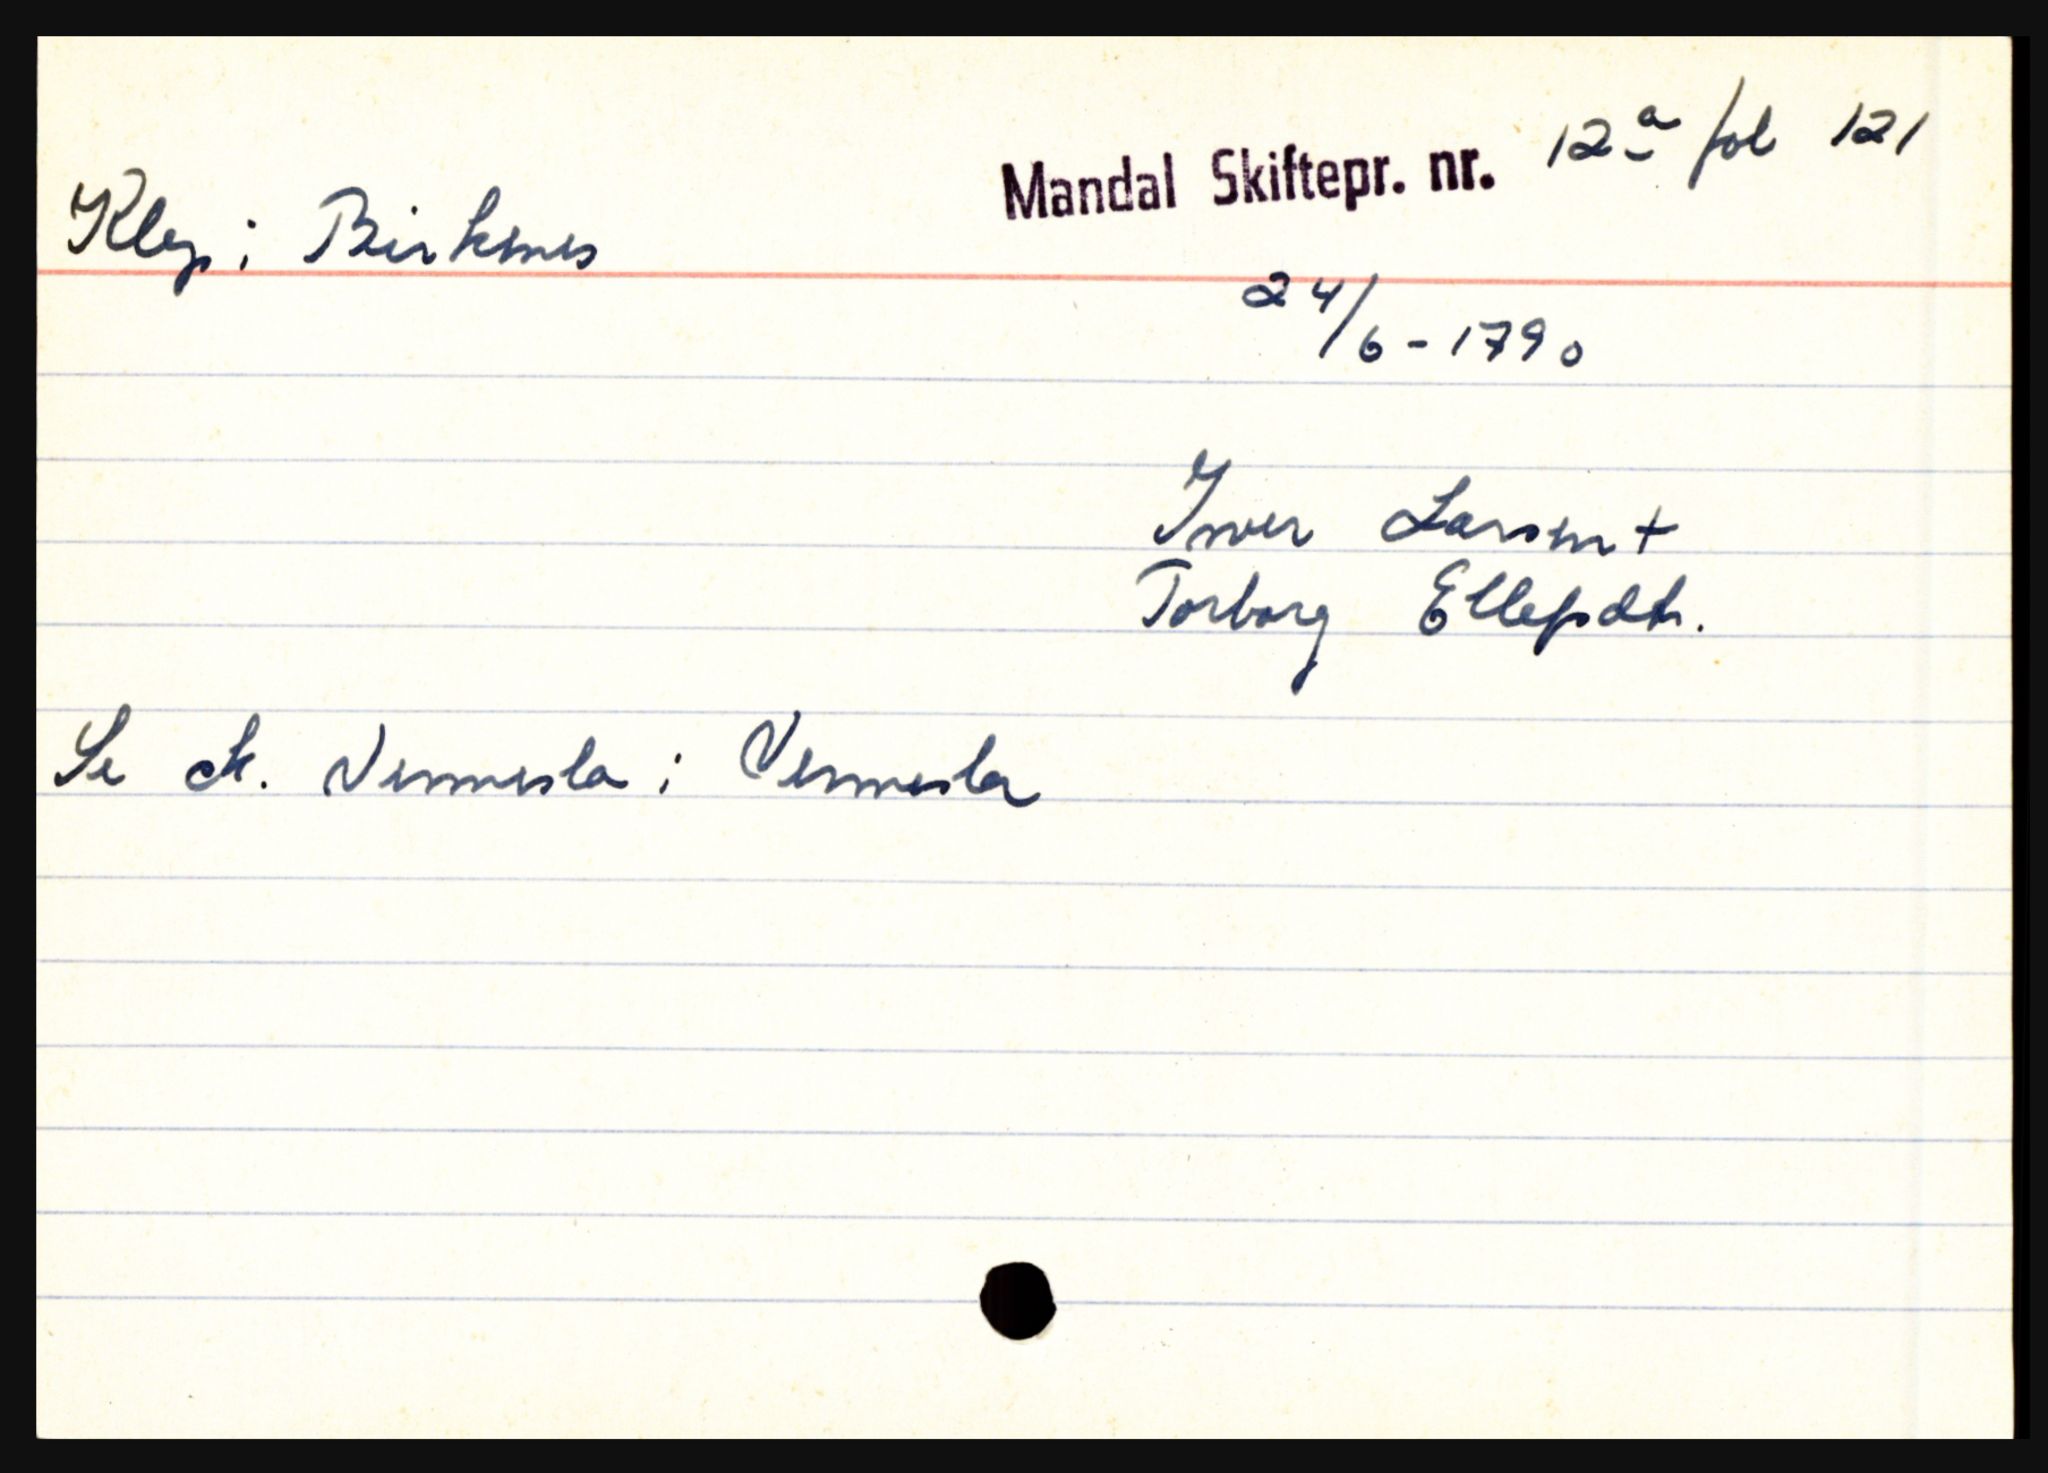 Mandal Skiftepr. nr. 12a fol 121
Klep i Birkenes
24/6-1790
Iver Larsen +
Torborg Ellefsdtr.
Se sk. Vennesla i Vennesla